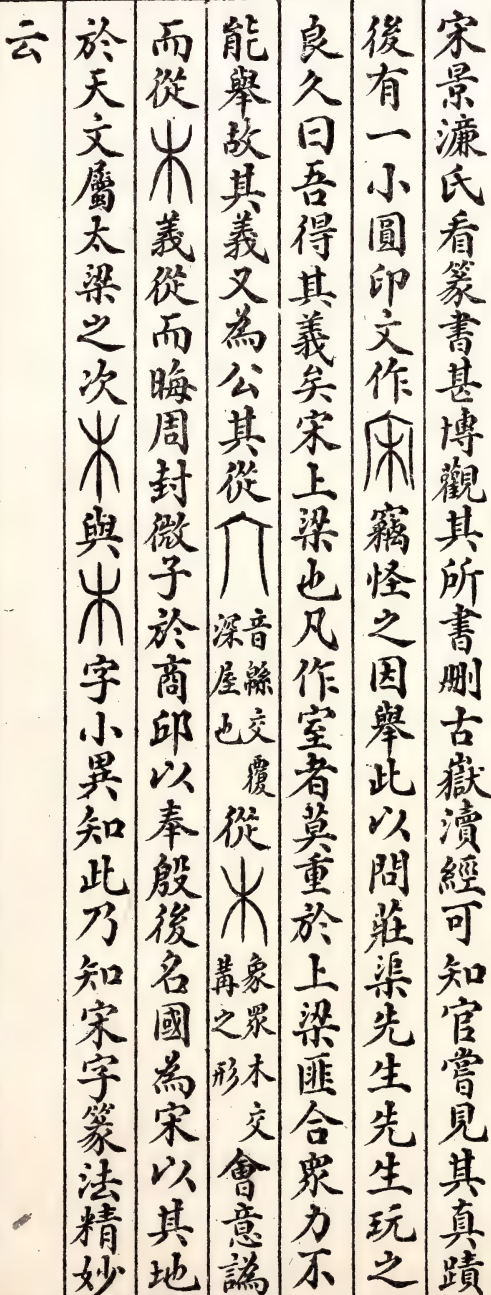 宋景濂氏看篆書甚博觀其所書刪古嶽瀆經可知官嘗見其真蹟
後有一小圓印文作宋竊怪之因舉此以問莊渠先生先生玩之
良久曰吾得其義矣宋上梁也凡作室者莫重於上梁匪合衆力不
能舉故其義又為公其從宀音緜交覆深屋也從木象眾木交冓之形會意譌
而從木義從而晦周封微子於商邱以奉殷後名國為宋以其地
於天文屬太梁之次木與木字小異知此乃知宋字篆法精妙
云